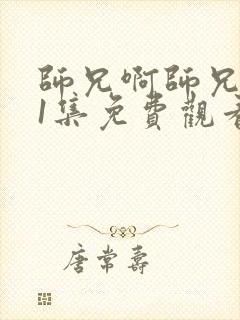 師兄啊師兄
1集免費觀看
唐常壽